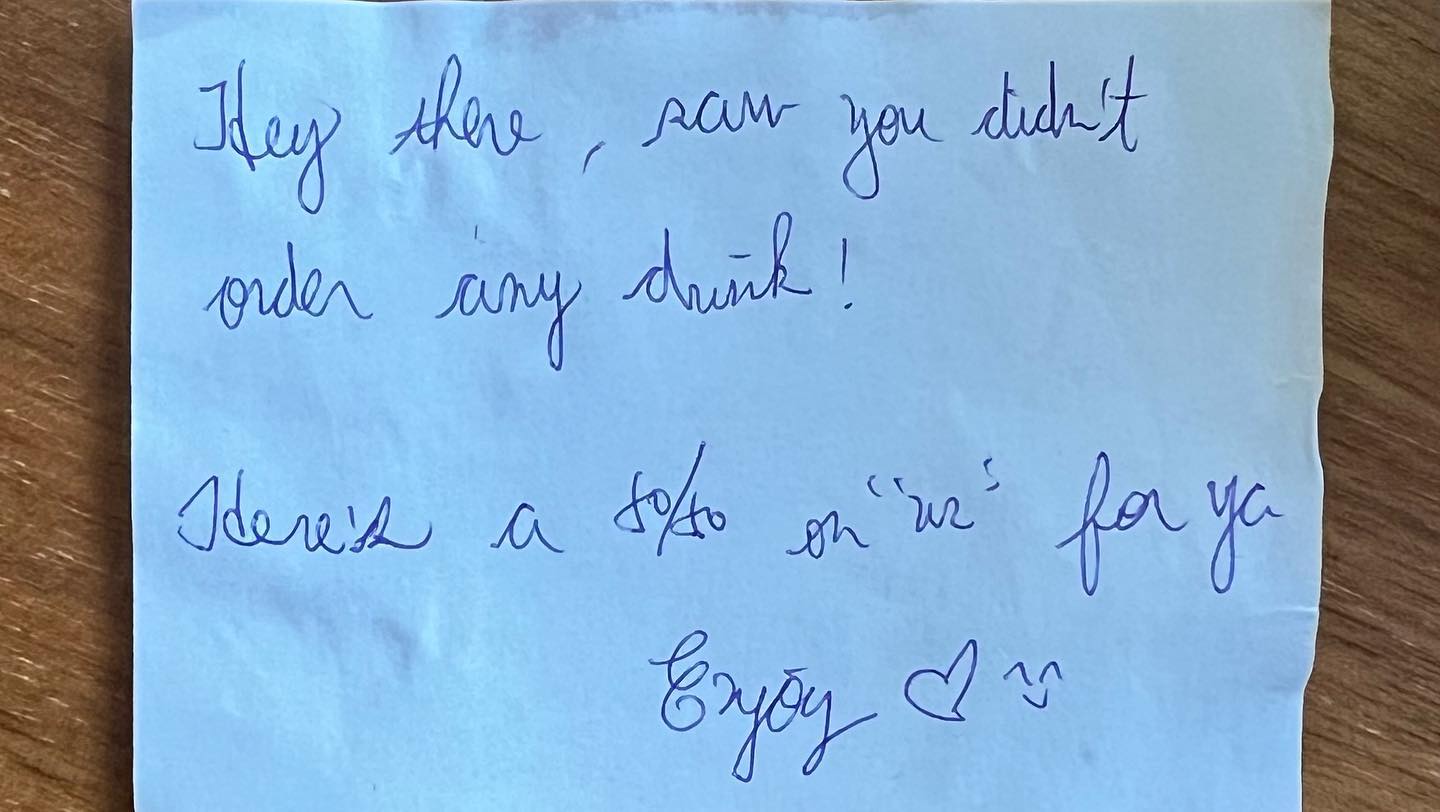 Hey there, saw you didn't
order any drink!
Here's a 50/50 on "us" for ya
Enjoy ♡